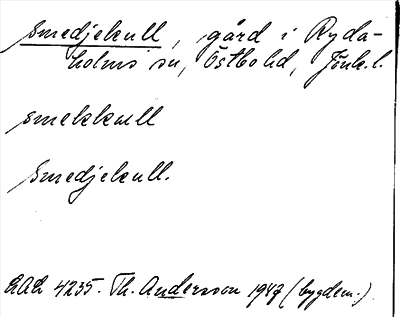 Smedjekull, gård i Ryda-
holms sn, Östbo hd, Jönk. l.
smekkull
Smedjekull.
EAL 4235. Th. Andersson 1947 (bygdem.)